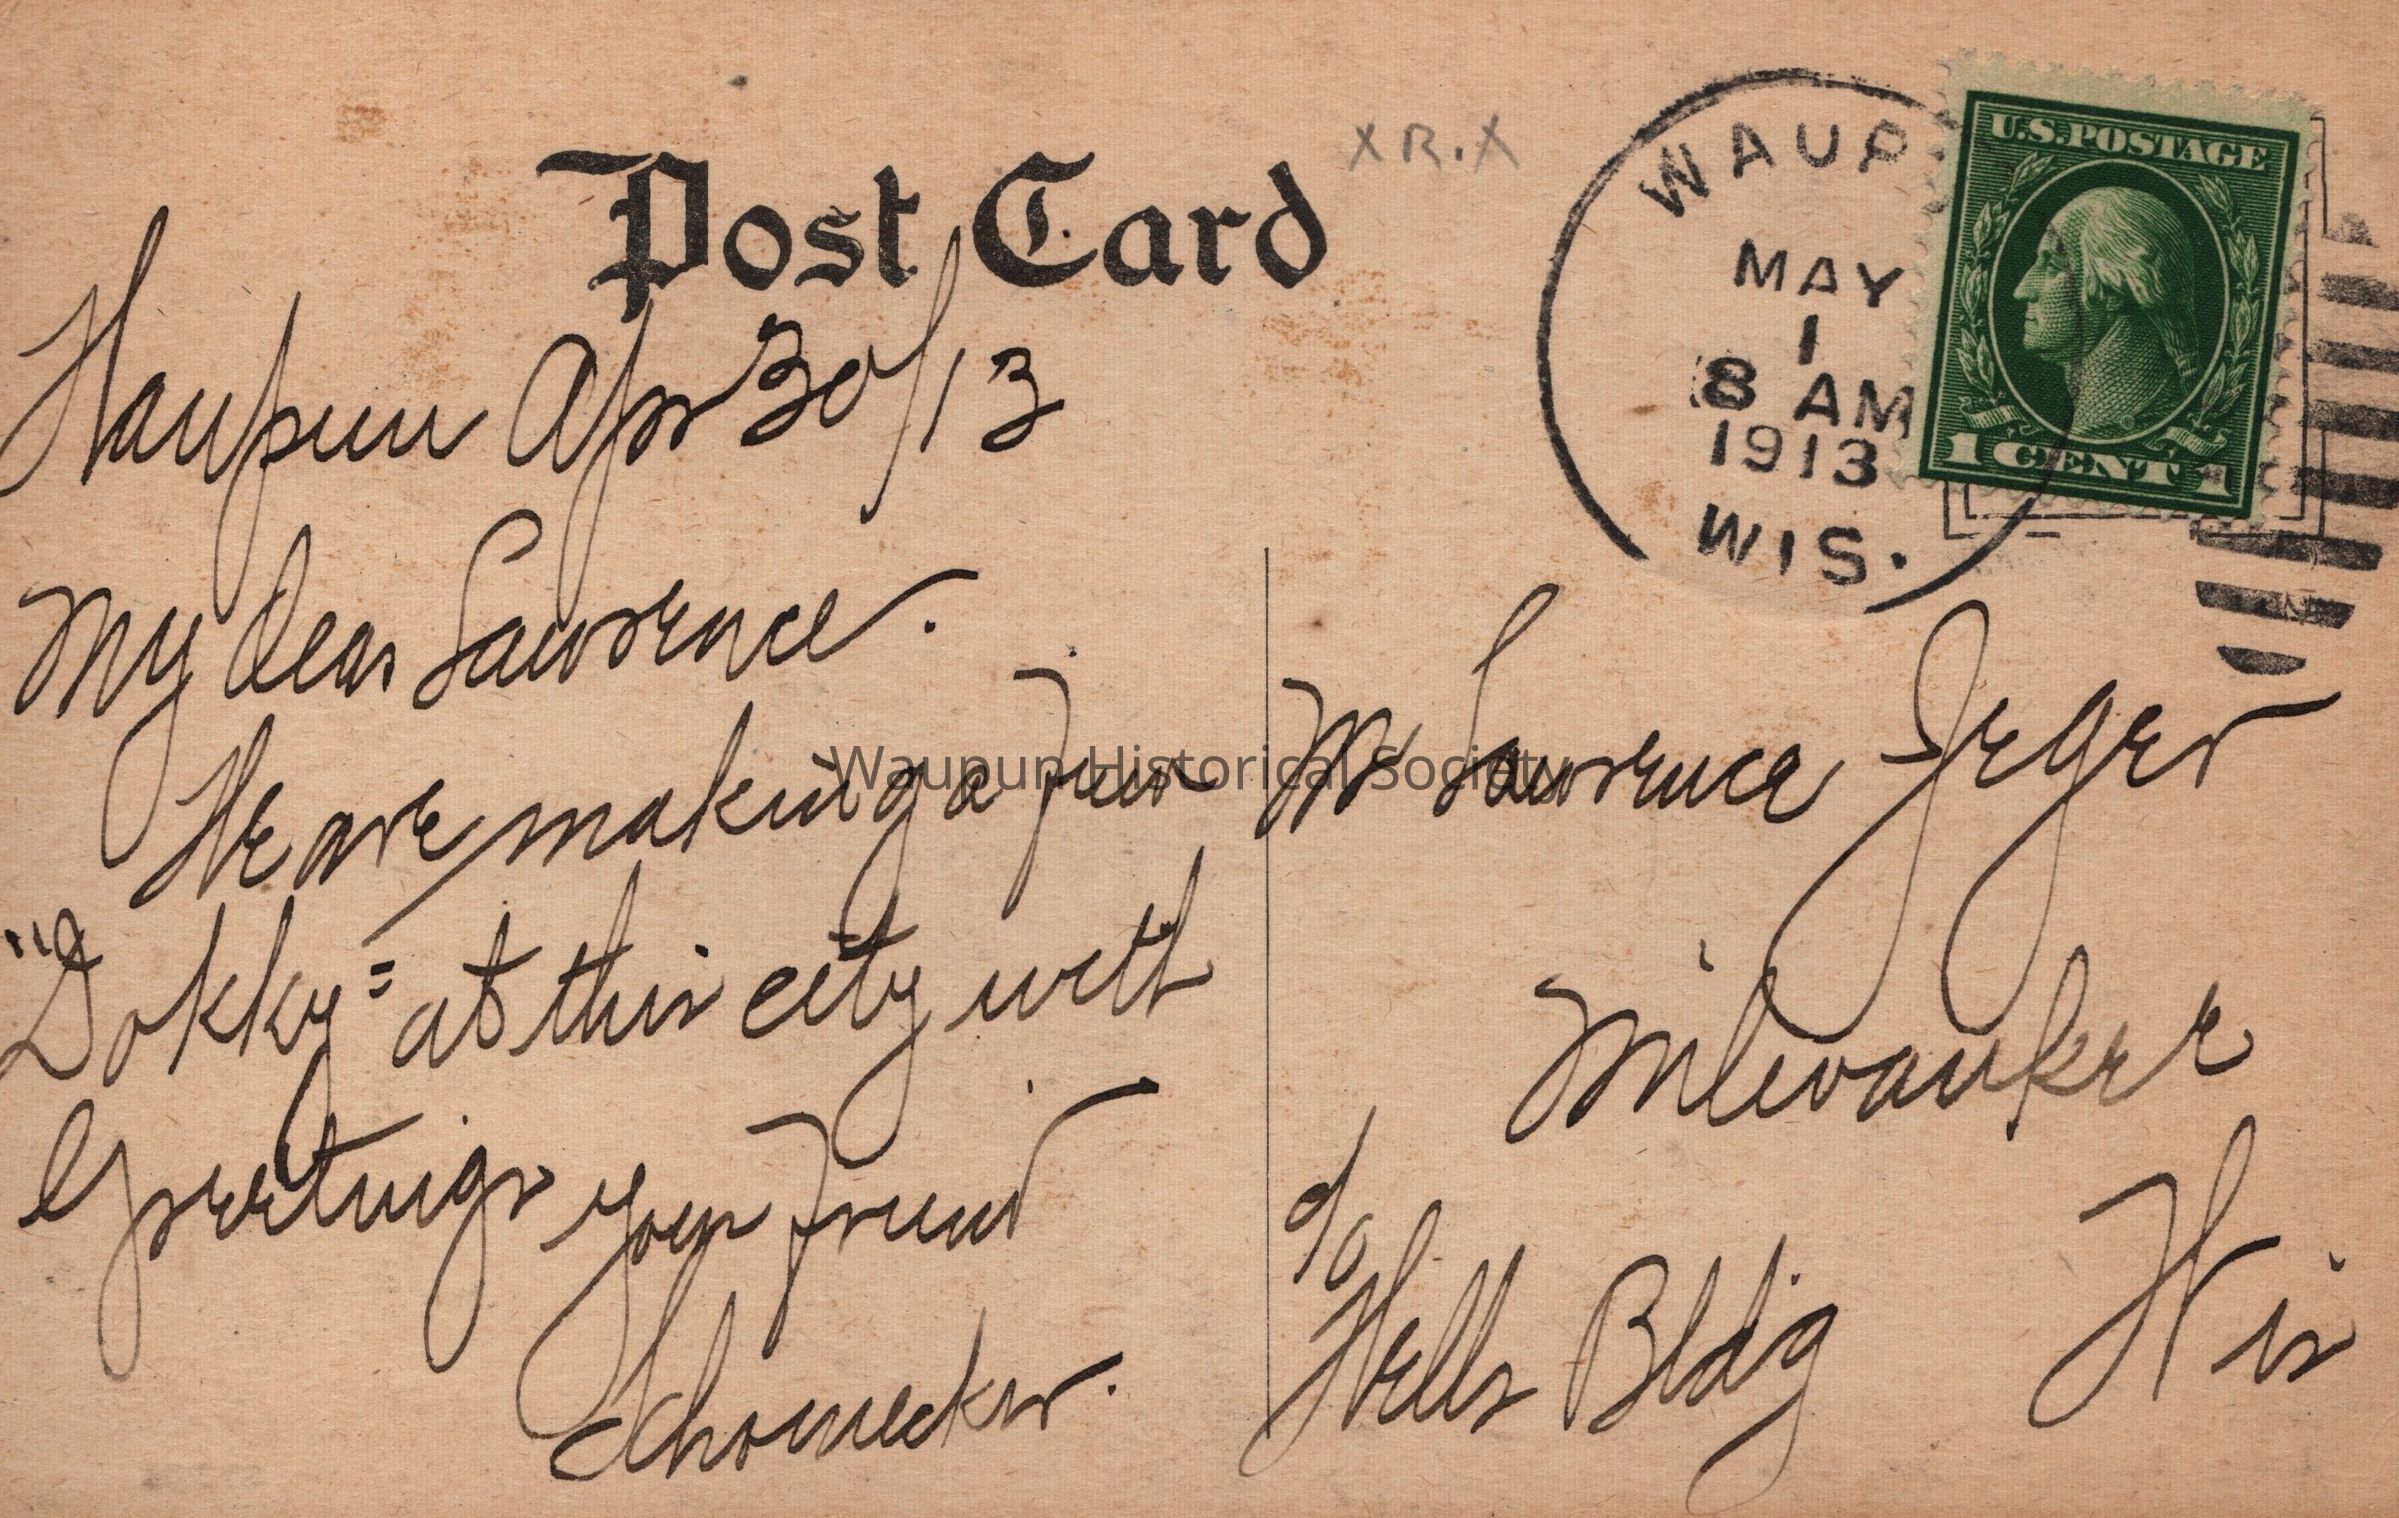 Post Card
X R. X
WAUP
MAY
1
8 AM
1913
WIS.
U.S. POSTAGE
1 CENT 1
Waupun Apr 30/13
My dear Lawrence.
We are making a few
"Dokky" at this city with
Greetings your friend
Schoenecker.
Mr Lawrence Jeger
Milwaukee
c/o
Wells Bldg Wis
Waupun Historical Society